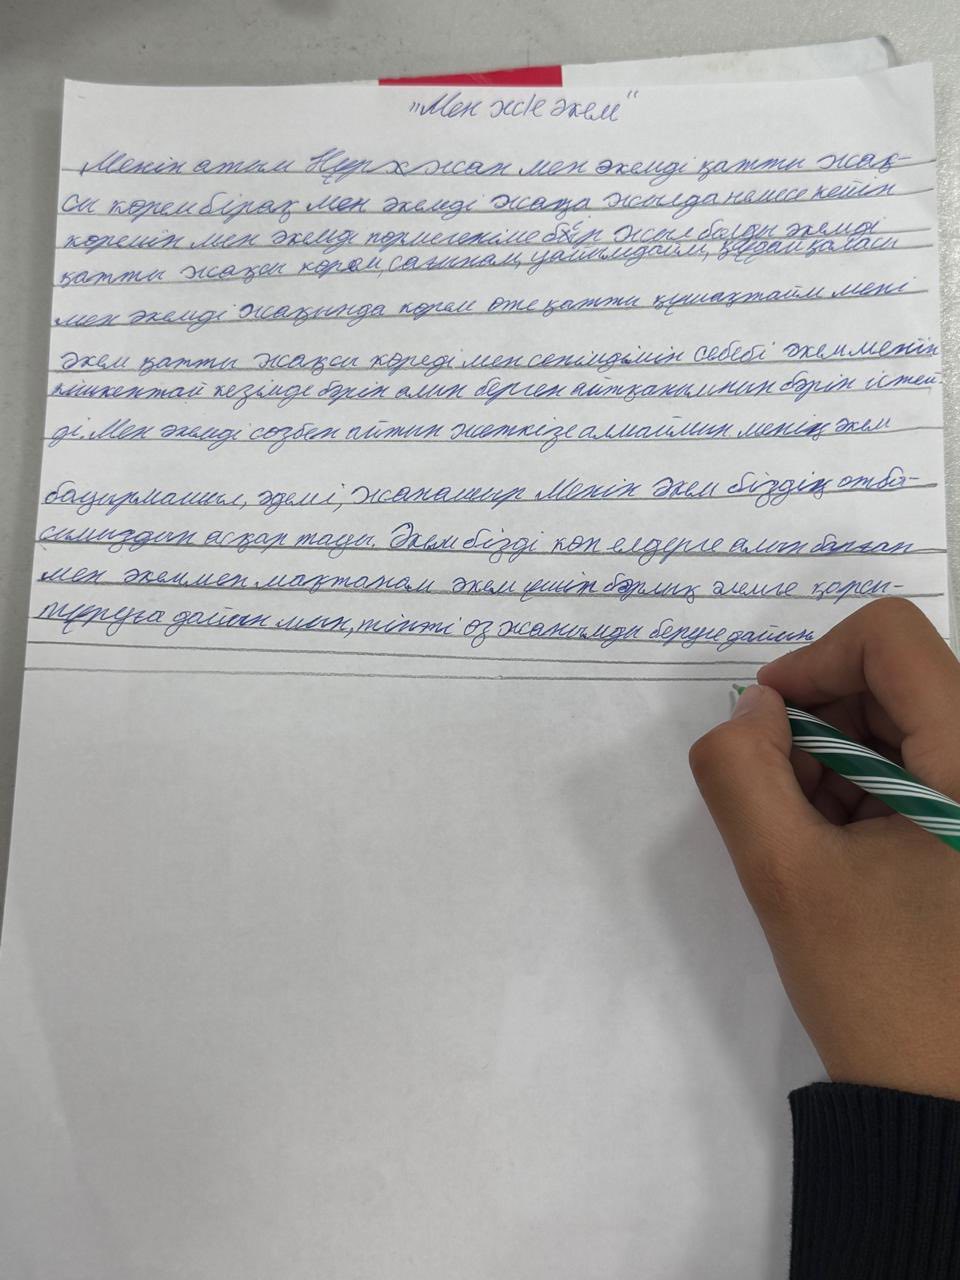 "Мен ж/е әкем"
Менін атым Нұржан мен әкемді қатты жақ-
сы көрем бірақ мен әкемді жаңа жылда немесе кейін
көремін мен әкемді көрмегеніме бір жыл болды әкемді
қатты жақсы көрем, сағынам, уайымдайм,
мен әкемді жақында көрем өте қатты құшақтайм мені
әкем қатты жақсы көреді мен сенімдімін себебі әкем менін
кішкентай кезімде бәрін алып берген айтқанымнын бәрін істей-
ді. Мен әкемді сөзбен айтып жеткізе алмаймын менің әкем
бауырмашыл, әдемі, жанашыр Менін әкем біздің отба-
сымыздын асқар тауы. Әкем бізді көп елдерге алып барған
мен әкеммен мақтанам әкем үшін бәрлық әлемге қарсы-
тұруға дайын мын, тіпті өз жанымды беруге дайын